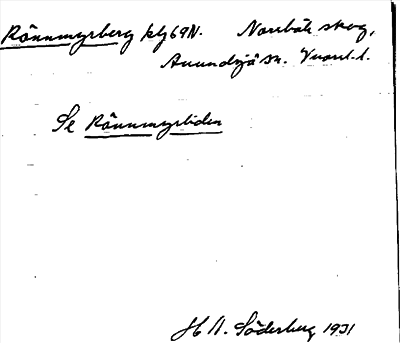 Rännmyrberg klj 69N. Norrbäck skog,
Anundsjö sn. Vnorrl. l.
Se Rännmyrliden
H A. Söderberg 1931